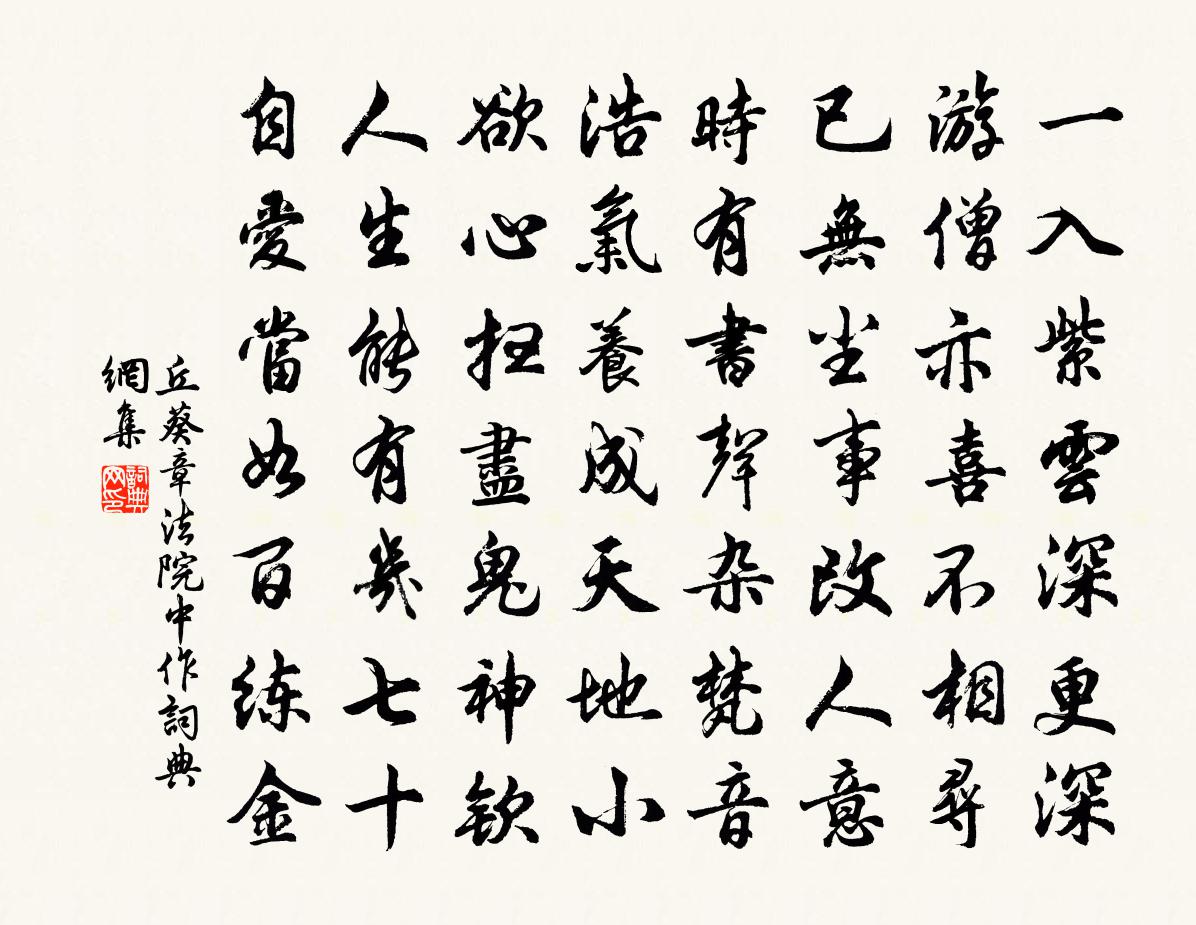 一入紫雲深更深
游僧亦喜不相尋
已無尘事改人意
時有書聲杂梵音
浩氣養成天地小
欲心扫盡鬼神欽
人生能有幾七十
自愛當如百练金
丘葵章法院中作詞典
網集
詞典
网印